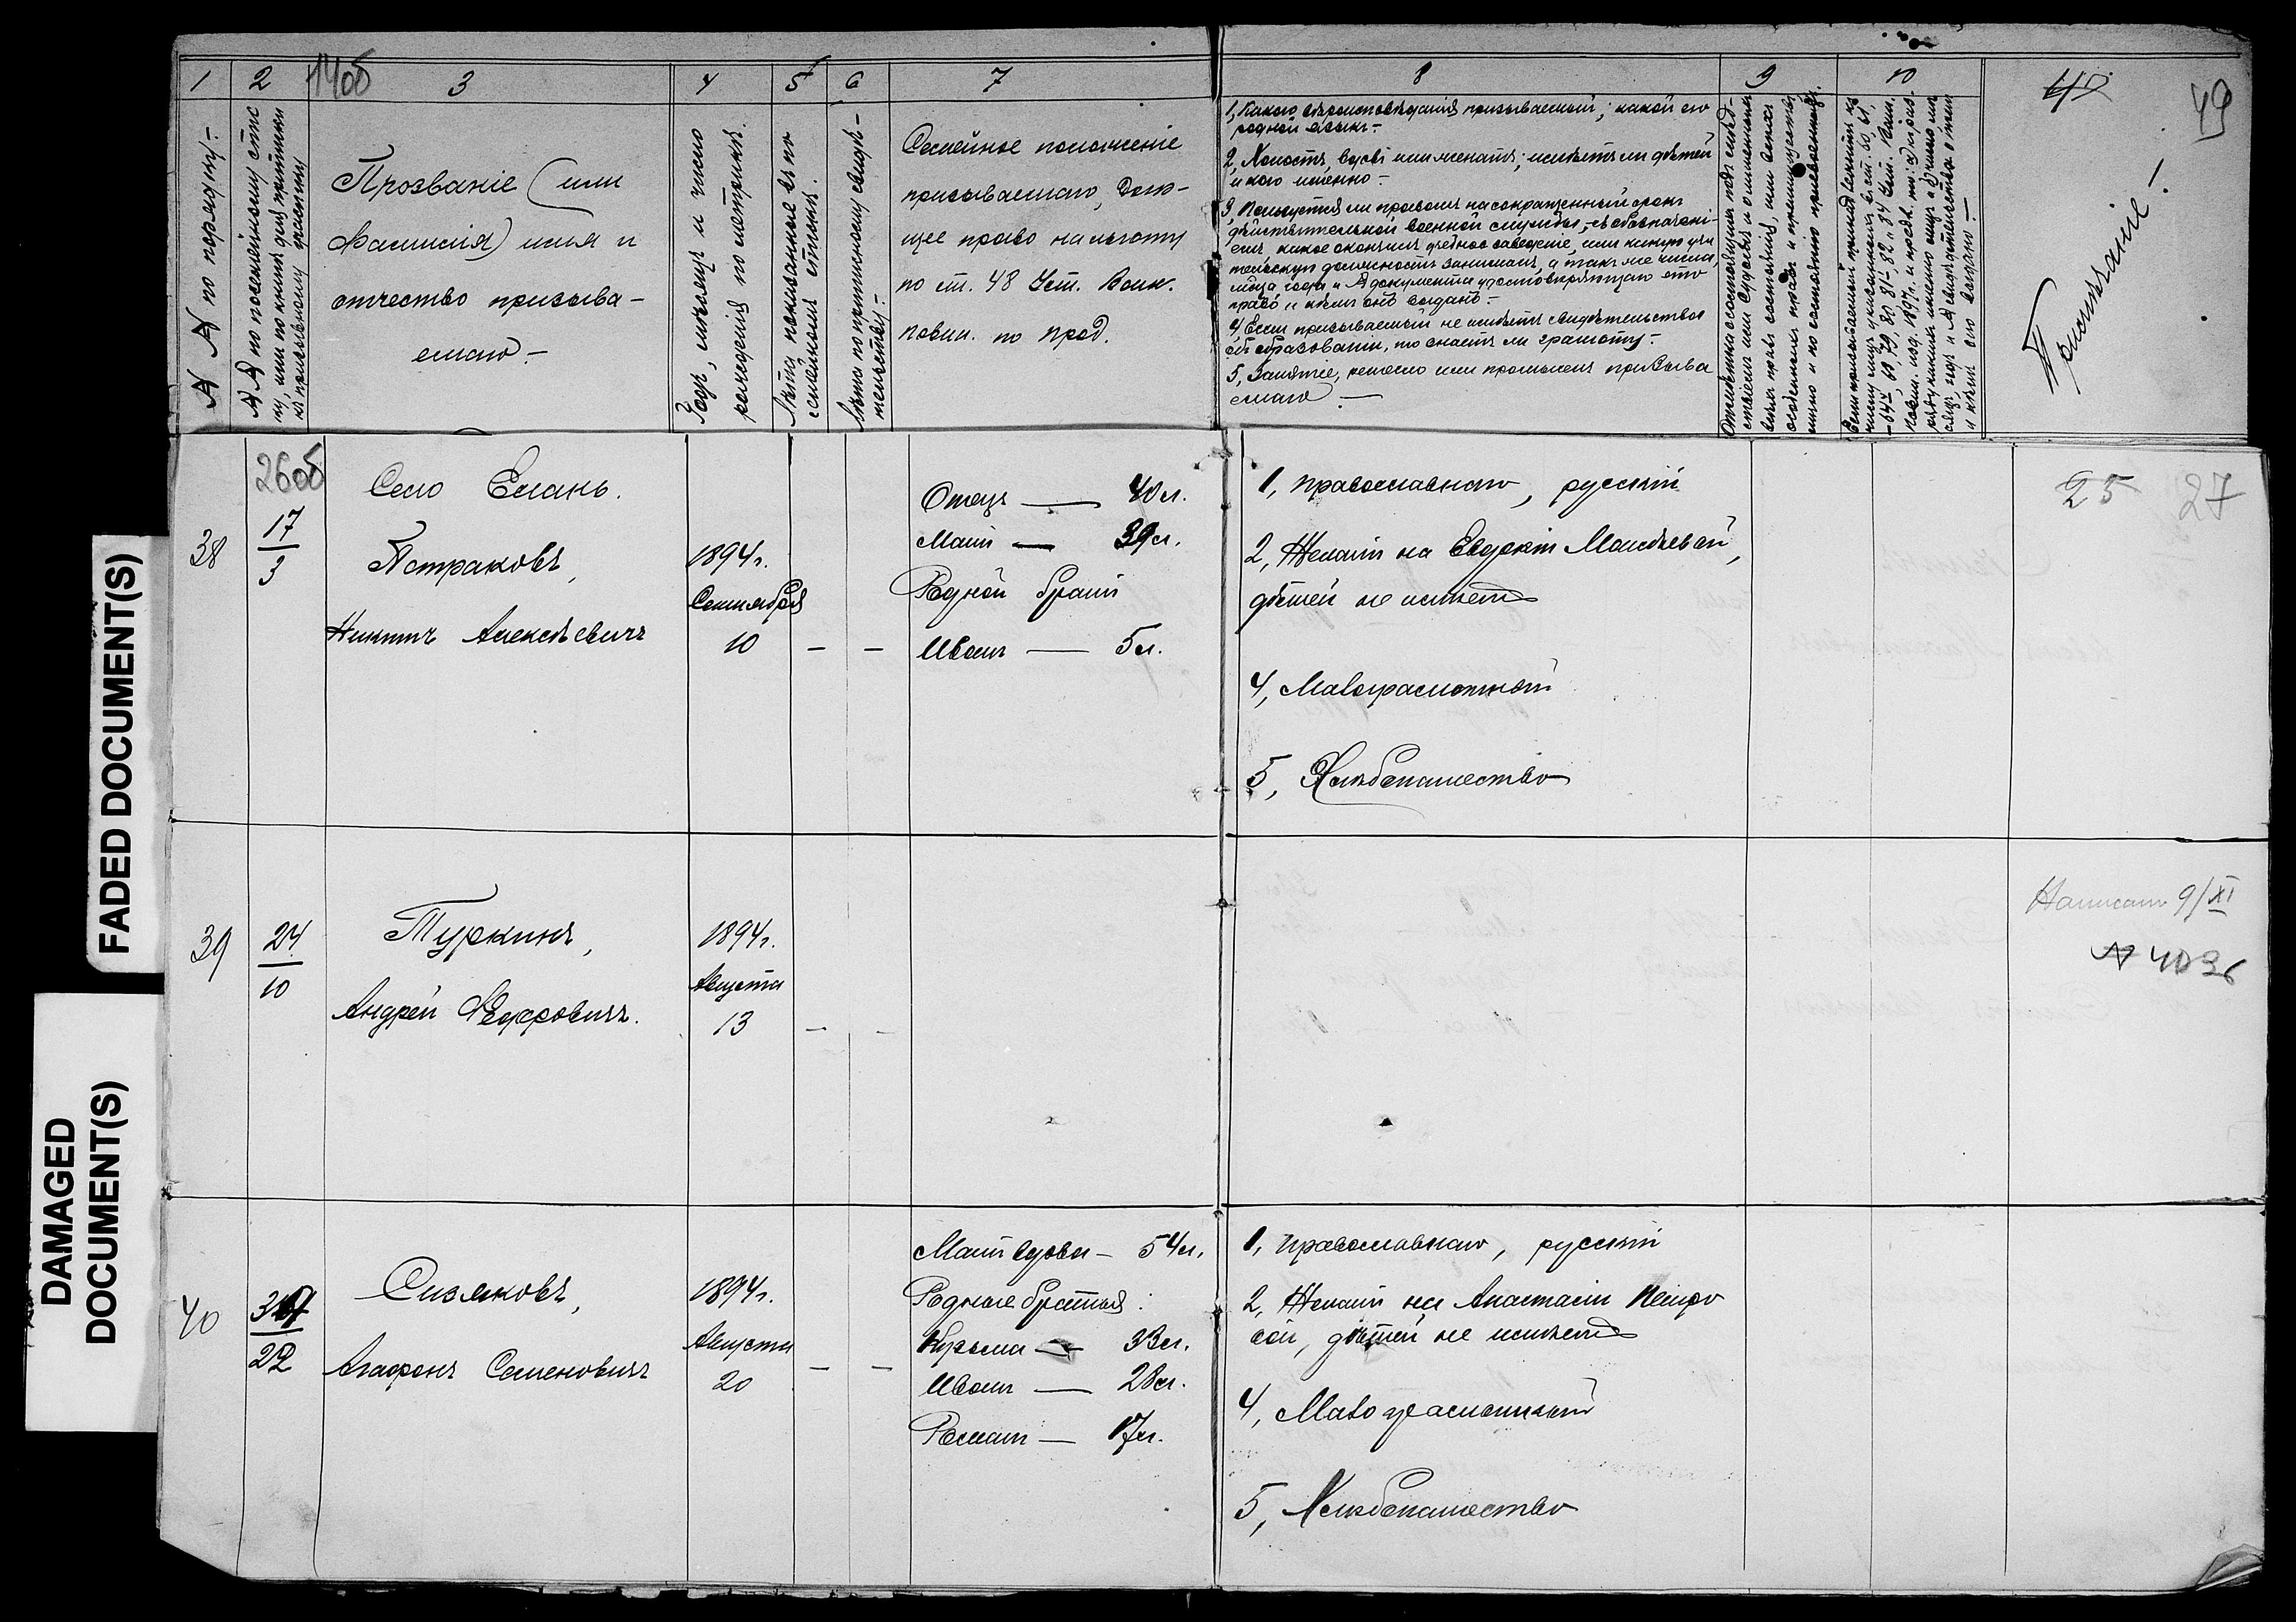 1 2 3 4 5 6 7 8 9 10
14об
49
№ № по порядку.-
Прозваніе (или
фамилія) имя и
отчество призыва-
емаго.-
Годъ, мѣсяцъ и число
рожденія по метрикѣ.
Лѣта показанное въ по
семейномъ спискѣ.
Лѣта по приписному свидѣ-
тельству.-
Семейное положеніе
призываемаго, даю-
щее право на льготу
по ст. 48 Уст. Воин.
повин. по прод.
1, Какого вѣроисповѣданія призываемый; какой его
родной языкъ.-
2, Холостъ, вдовъ или женатъ; имѣетъ ли дѣтей
и кого именно.-
3, Пользуется ли правомъ на сокращенный срокъ
дѣйствительной военной службы, съ обозначені-
емъ, какое окончилъ учебное заведеніе, или какую учи
тельскую должность занимаетъ, а также числа,
мѣсяца года и № документа удостовѣряющаго это
право и кѣмъ онъ выданъ.-
4, Если призываемый не имѣетъ свидѣтельства
объ образованіи, то знаетъ ли грамоту.-
5, Занятіе, ремесло или промыселъ призыва
емаго.-
Примѣчаніе.-
26об
Село Елань.
25 27
38
17
3
Пстраковъ,
Никита Алексѣевичъ
1894г.
Сентября
10
- -
Отецъ — 40л.
Мать — 39л.
Родной братъ
Иванъ — 5л.
1, православнаго, русскій
2, Женатъ на Евдокіи Матвѣевой,
дѣтей не имѣетъ
4, Малограмотный
5, Хлѣбопашество
39
24
10
Туркинъ,
Андрей Федоровичъ.
1894г.
Августа
13
- -
Написано 9/XI
№ 4036
40
22
Сизяковъ,
Агафонъ Семеновичъ
1894г.
Августа
20
- -
Мать вдова - 54л.
Родные братья:
Кузьма — 33л.
Иванъ — 28л.
Романъ — 17л.
1, православнаго, русскій
2, Женатъ на Анастасіи Петро
вой, дѣтей не имѣетъ
4, Малограмотный
5, Хлѣбопашество
FADED DOCUMENT(S)
DAMAGED
DOCUMENT(S)